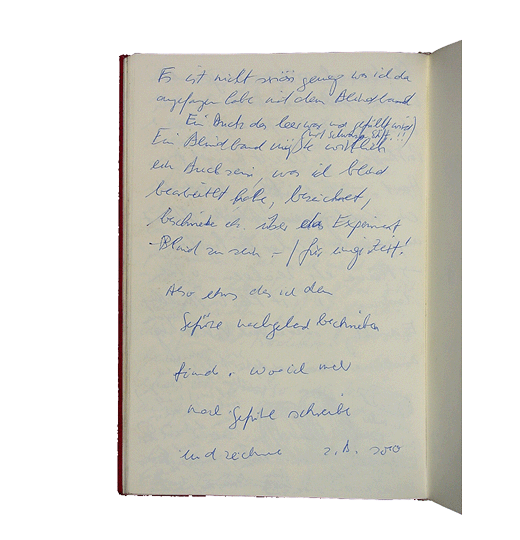 Es ist nicht seriös genug was ich da
angefangen habe mit dem Blindband
Ein Buch das leer war was gefüllt wird
(mit schwarz Stift!!)
Ein Blindband müßte wirklich
ein Buch sein, was ich blind
bearbeitet habe, bezeichnet,
beschrieben über das Experiment
Blind zu sein - / für einige Zeit!
Also etwas das ich dem
Gefühl nachgehend beschrieben
finde. Wo ich mehr
nach Gefühl schreibe
und zeichne z.B. 2010